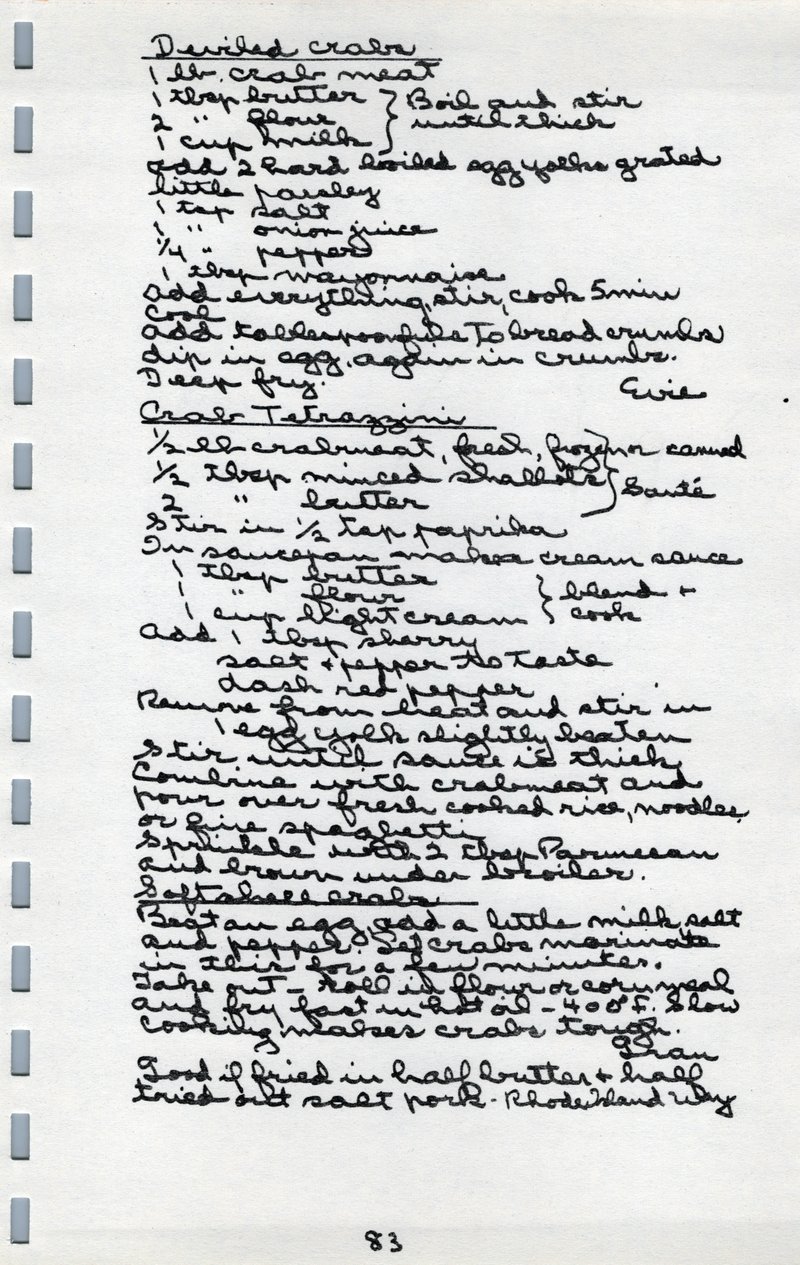 Deviled crabs
1 lb. crab meat
1 tbsp butter } Boil and stir
2 " flour } until thick
1 cup milk }
add 2 hard boiled egg yolks grated
little parsley
1 tsp salt
1 " onion juice
1/4 " pepper
1 tbsp mayonnaise
add everything, stir, cook 5 min
Cool
add tablespoonfuls to bread crumbs
dip in egg, again in crumbs.
Deep fry. Evie
Crab Tetrazzini
1/2 lb crabmeat, fresh, frozen or canned
1/2 tbsp minced shallots } Sauté
2 " butter
Stir in 1/2 tsp paprika
In saucepan make cream sauce
1 tbsp butter
1 " flour } blend +
1 cup light cream } cook
add 1 tbsp sherry
salt + pepper to taste
dash red pepper
Remove from heat and stir in
1 egg yolk slightly beaten
Stir until sauce is thick
Combine with crabmeat and
pour over fresh cooked rice, noodles,
or fine spaghetti
Sprinkle with 2 tbsp Parmesan
and brown under broiler.
Softshell crabs
Beat an egg, add a little milk, salt
and pepper. Let crabs marinate
in this for a few minutes.
Take out - roll in flour or cornmeal
and fry fast in hot oil - 400°F. Slow
cooking makes crabs tough.
Gran
Good if fried in half butter + half
tried out salt pork - Rhode Island Way
83